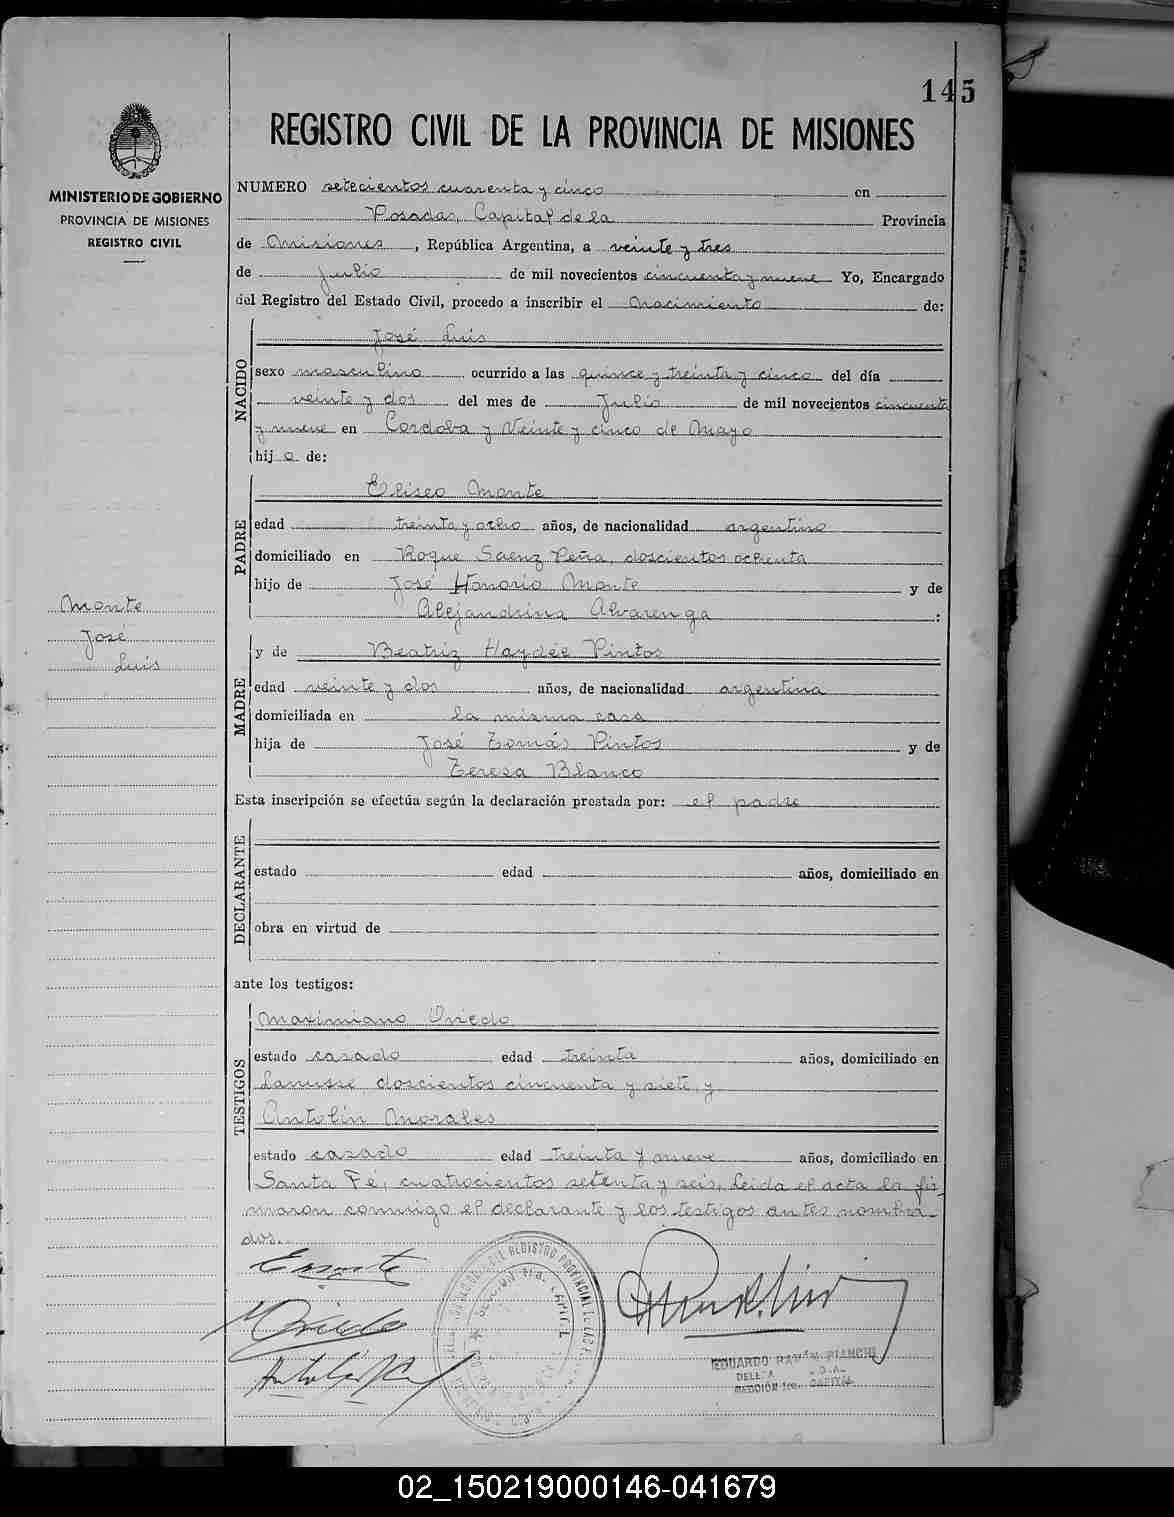 145
REGISTRO CIVIL DE LA PROVINCIA DE MISIONES
MINISTERIO DE GOBIERNO
PROVINCIA DE MISIONES
REGISTRO CIVIL
NUMERO setecientos cuarenta y cinco en
Posadas, Capital de la Provincia
de Misiones, República Argentina, a veinte y tres
de Julio de mil novecientos cincuenta y nueve Yo, Encargado
del Registro del Estado Civil, procedo a inscribir el Nacimiento de:
NACIDO
José Luis
sexo masculino ocurrido a las quince y treinta y cinco del día
veinte y dos del mes de Julio de mil novecientos cincuenta
y nueve en Cordoba y Veinte y cinco de Mayo
hijo de:
PADRE
Eliseo Monte
edad treinta y ocho años, de nacionalidad argentino
domiciliado en Roque Saenz Peña, doscientos ochenta
hijo de José Honorio Monte y de
Alejandrina Alvarenga :
Monte
José
Luis
MADRE
y de Beatriz Haydée Pintos
edad veinte y dos años, de nacionalidad argentina
domiciliada en la misma casa
hija de José Tomás Pintos y de
Teresa Blanco
Esta inscripción se efectúa según la declaración prestada por: el padre
DECLARANTE
estado edad años, domiciliado en
obra en virtud de
ante los testigos:
TESTIGOS
Maximiano Oviedo
estado casado edad treinta años, domiciliado en
Lanusse, doscientos cincuenta y siete, y
Antolín Morales
estado casado edad treinta y nueve años, domiciliado en
Santa Fé, cuatrocientos setenta y seis, leida el acta la fir-
maron conmigo el declarante y los testigos antes nombra-
dos.
EMonte
Oviedo
EDUARDO RAMÓN BIANCHI
SECCIÓN 1ra. CAPITAL
02_150219000146-041679